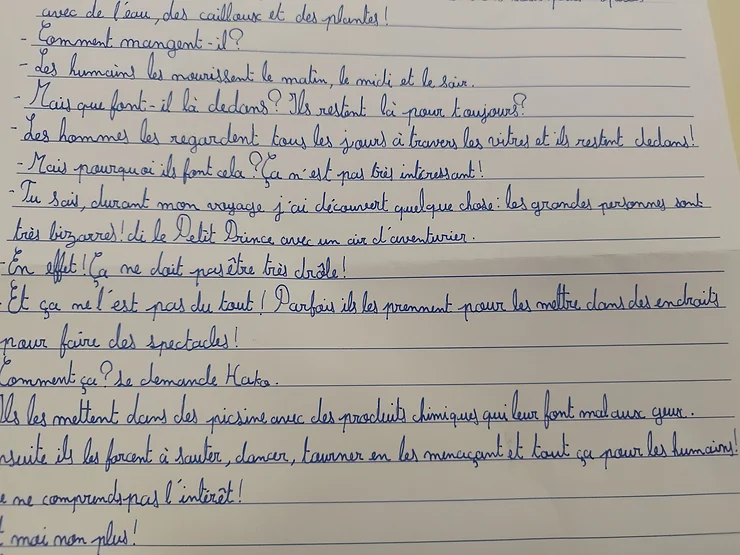 avec de l'eau, des cailloux et des plantes!
- Comment mangent-il?
- Les humains les nourissent le matin, le midi et le soir.
- Mais que font-il là dedans? Ils restent là pour toujours?
- Les hommes les regardent tous les jours à travers les vitres et ils restent dedans!
- Mais pourquoi ils font cela? Ça n'est pas très intéressant!
- Tu sais, durant mon voyage j'ai découvert quelque chose: les grandes personnes sont
très bizarres! di le Petit Prince avec un air d'aventurier.
- En effet! Ça ne doit pas être très drôle!
- Et ça ne l'est pas du tout! Parfois ils les prennent pour les mettre dans des endroits
pour faire des spectacles!
Comment ça? se demande Hako.
Ils les mettent dans des picsine avec des produits chimiques qui leur font mal aux yeux.
nsuite ils les forcent à sauter, dancer, tourner en les menaçant et tout ça pour les humains!
e ne comprends pas l'intérêt!
t moi non plus!